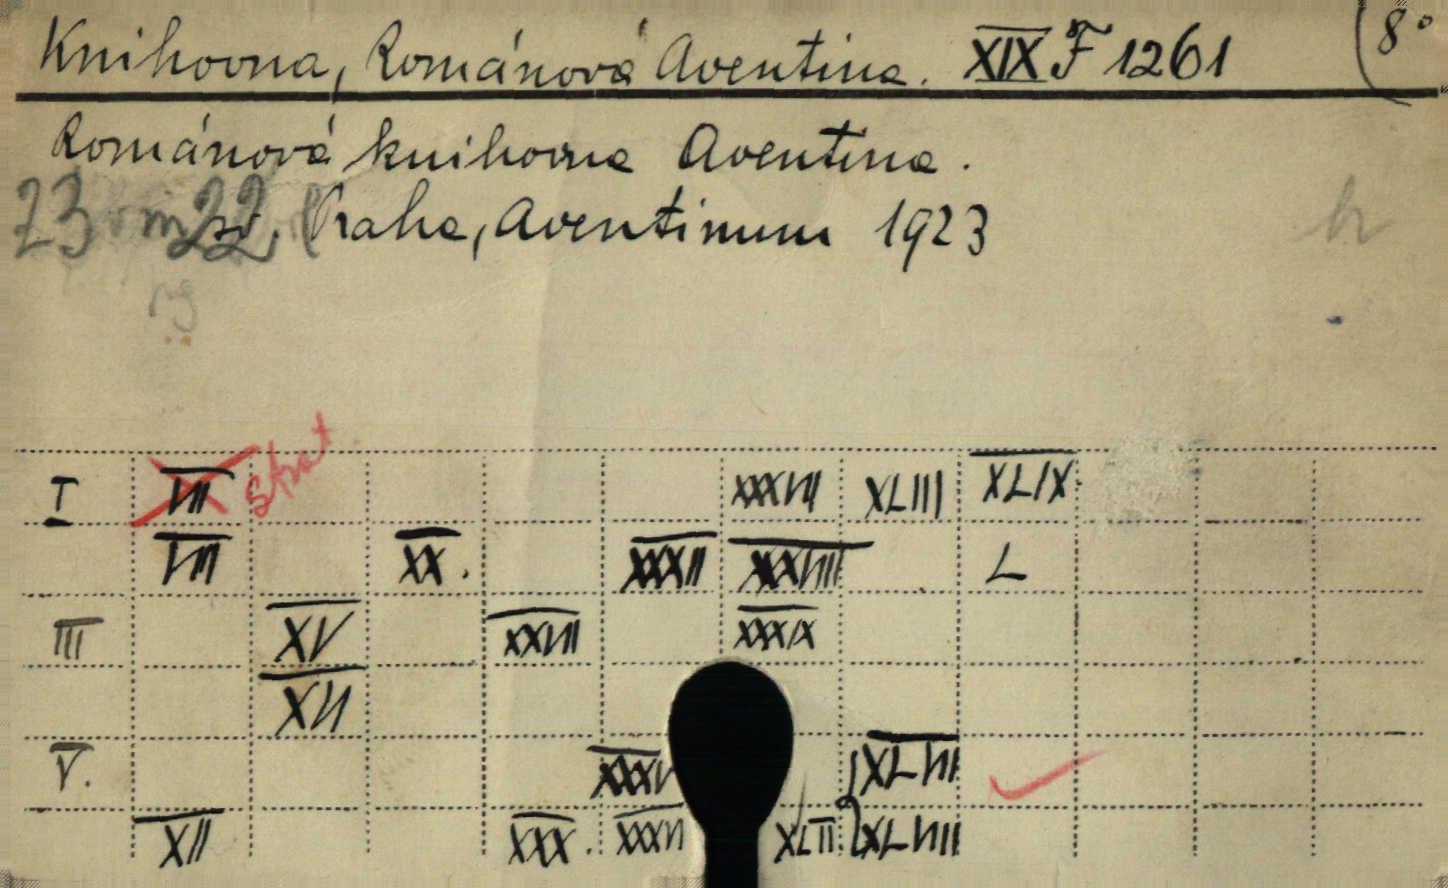 Knihovna, Románová Aventina. XIX F 1261 (8°
Románová knihovna Aventina.
23 22 sv. Praha, Aventinum 1923
I VII Strat. XXXVII XLIII XLIX
VIII XX. XXXII XXXVIII L
III XV XXVII XXXIX
XVI
V. XXXV XLVII
XII XXX. XXXVI XLII XLVIII